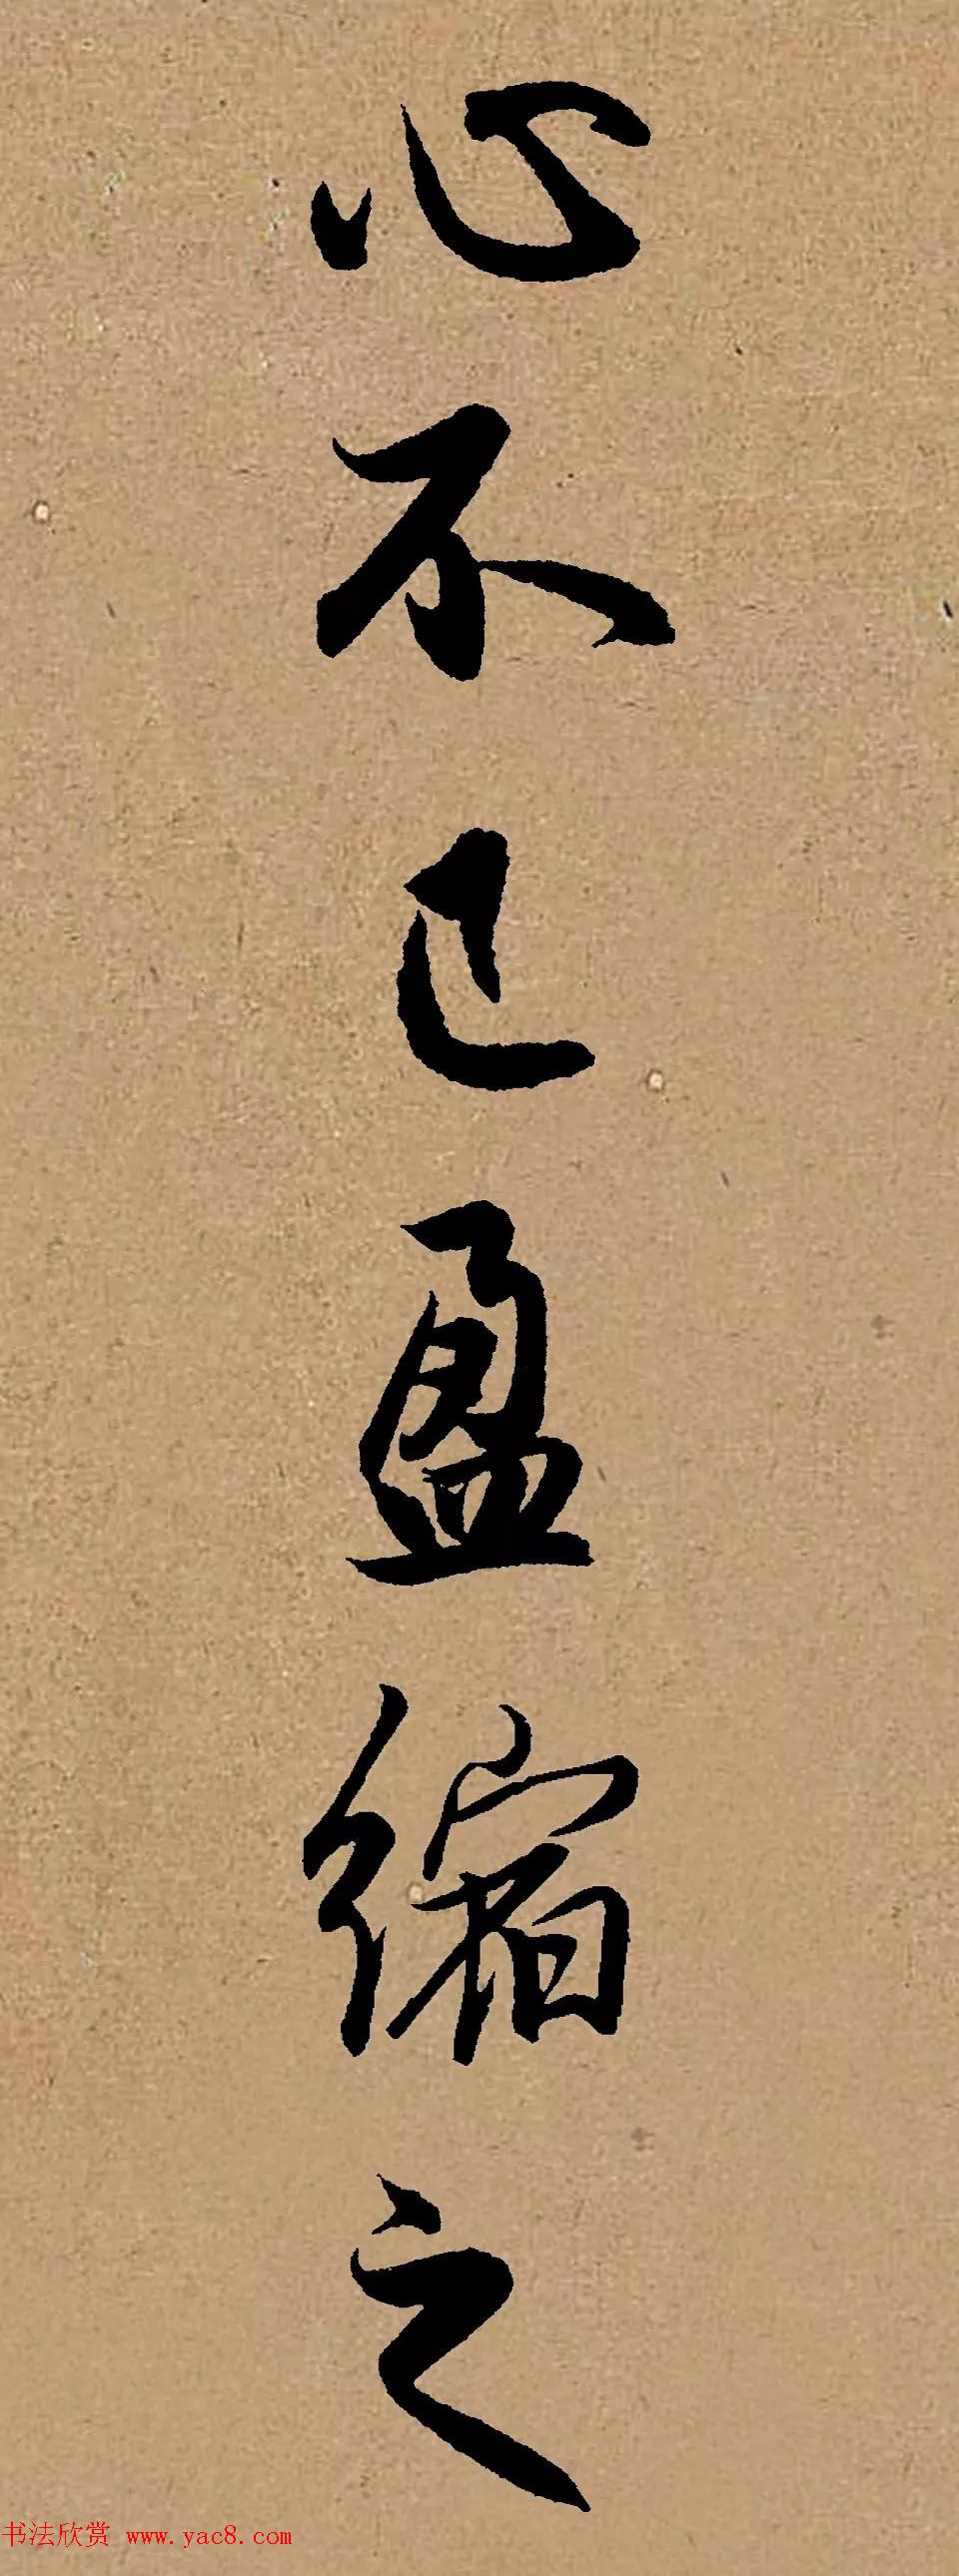 心不已盈縮之
书法欣赏 www.yac8.com